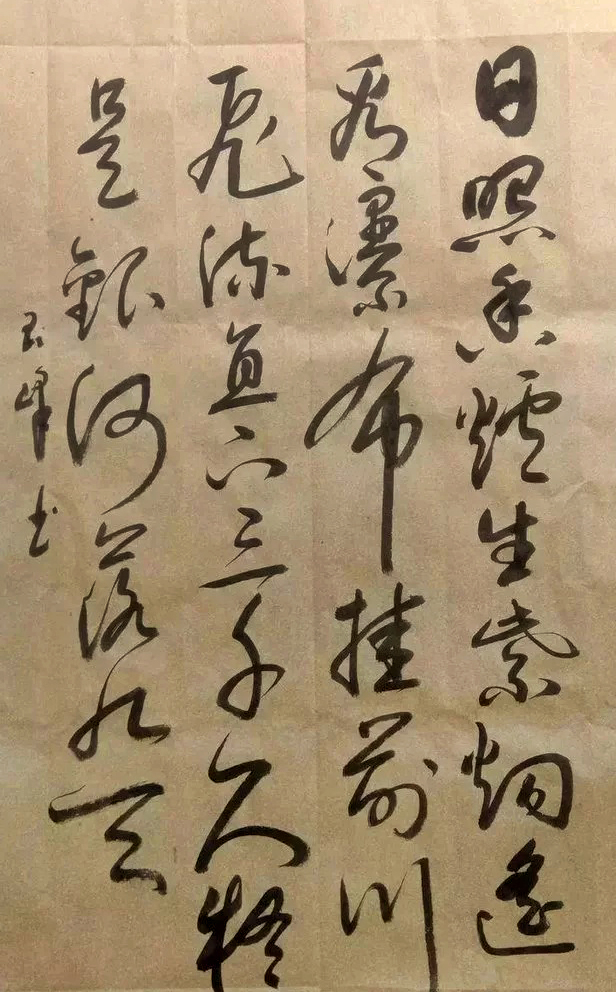 日照香爐生紫烟遥
看瀑布挂前川
飛流直下三千尺疑
是銀河落九天
峰书